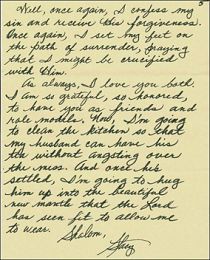 5
Well, once again, I confess my
sin and receive His forgiveness.
Once again, I set my feet on
the path of surrender, praying
that I might be crucified
with Him.
As always, I love you both.
I am so grateful, so honored,
to have you as friends and
role models. Now, I'm going
to clean the kitchen so that
my husband can have his
tea without angsting over
the mess. And once he's
settled, I'm going to hug
him up into the beautiful
new mantle that the Lord
has seen fit to allow me
to wear.
Shalom,